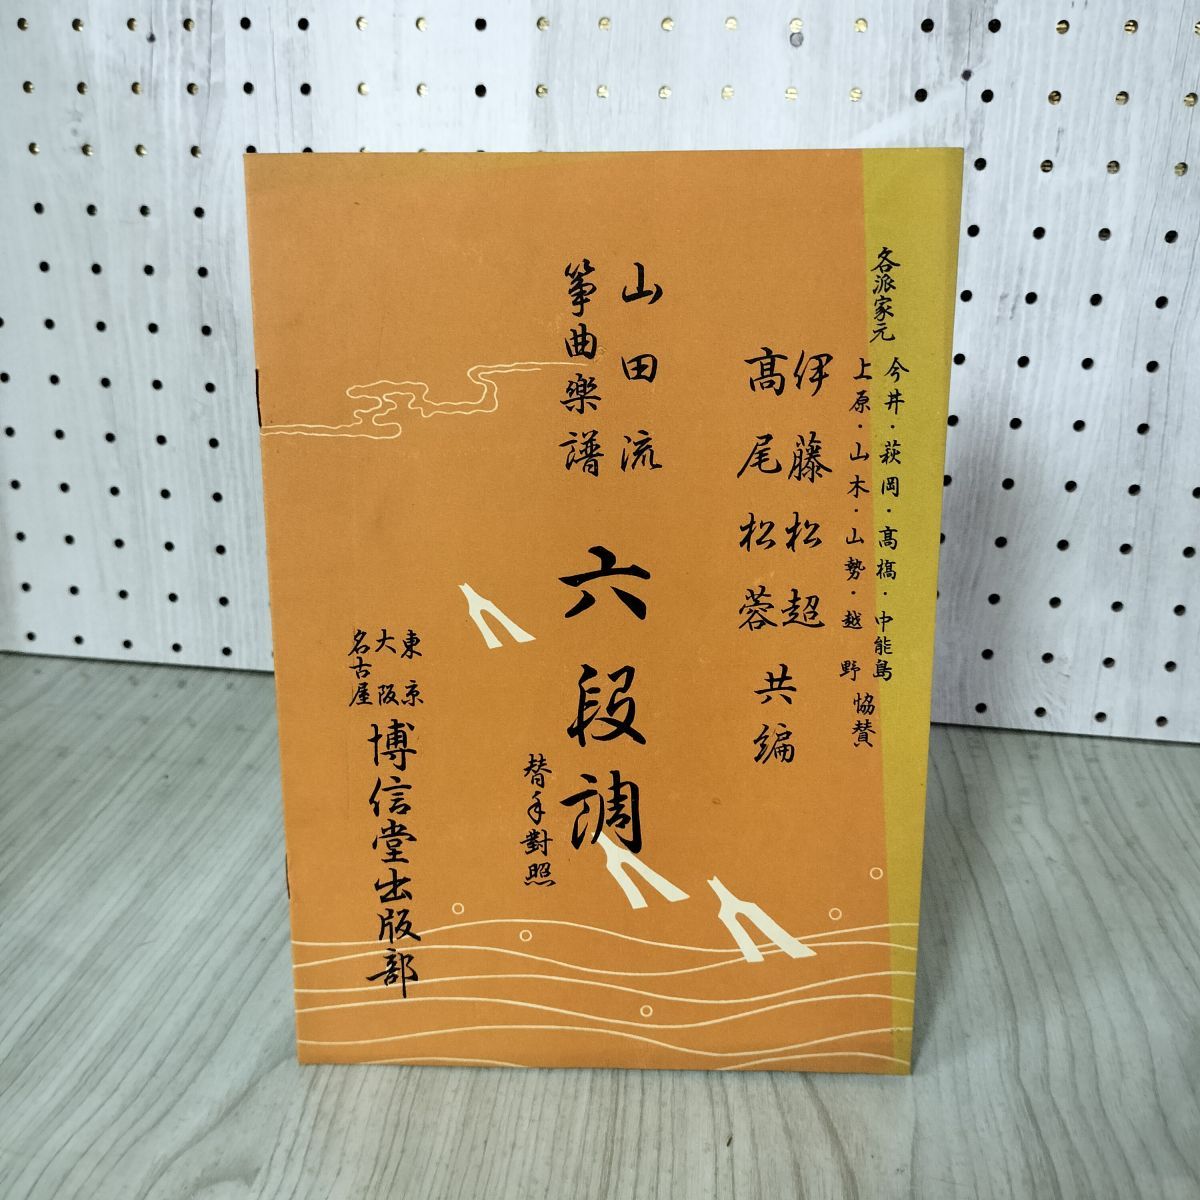 各派家元
今井・萩岡・髙槗・中能島
上原・山木・山勢・越野
協賛
伊藤松超
髙尾松蓉
共編
山田流
箏曲樂譜
六段調
替手對照
東京
大阪
名古屋
博信堂出版部